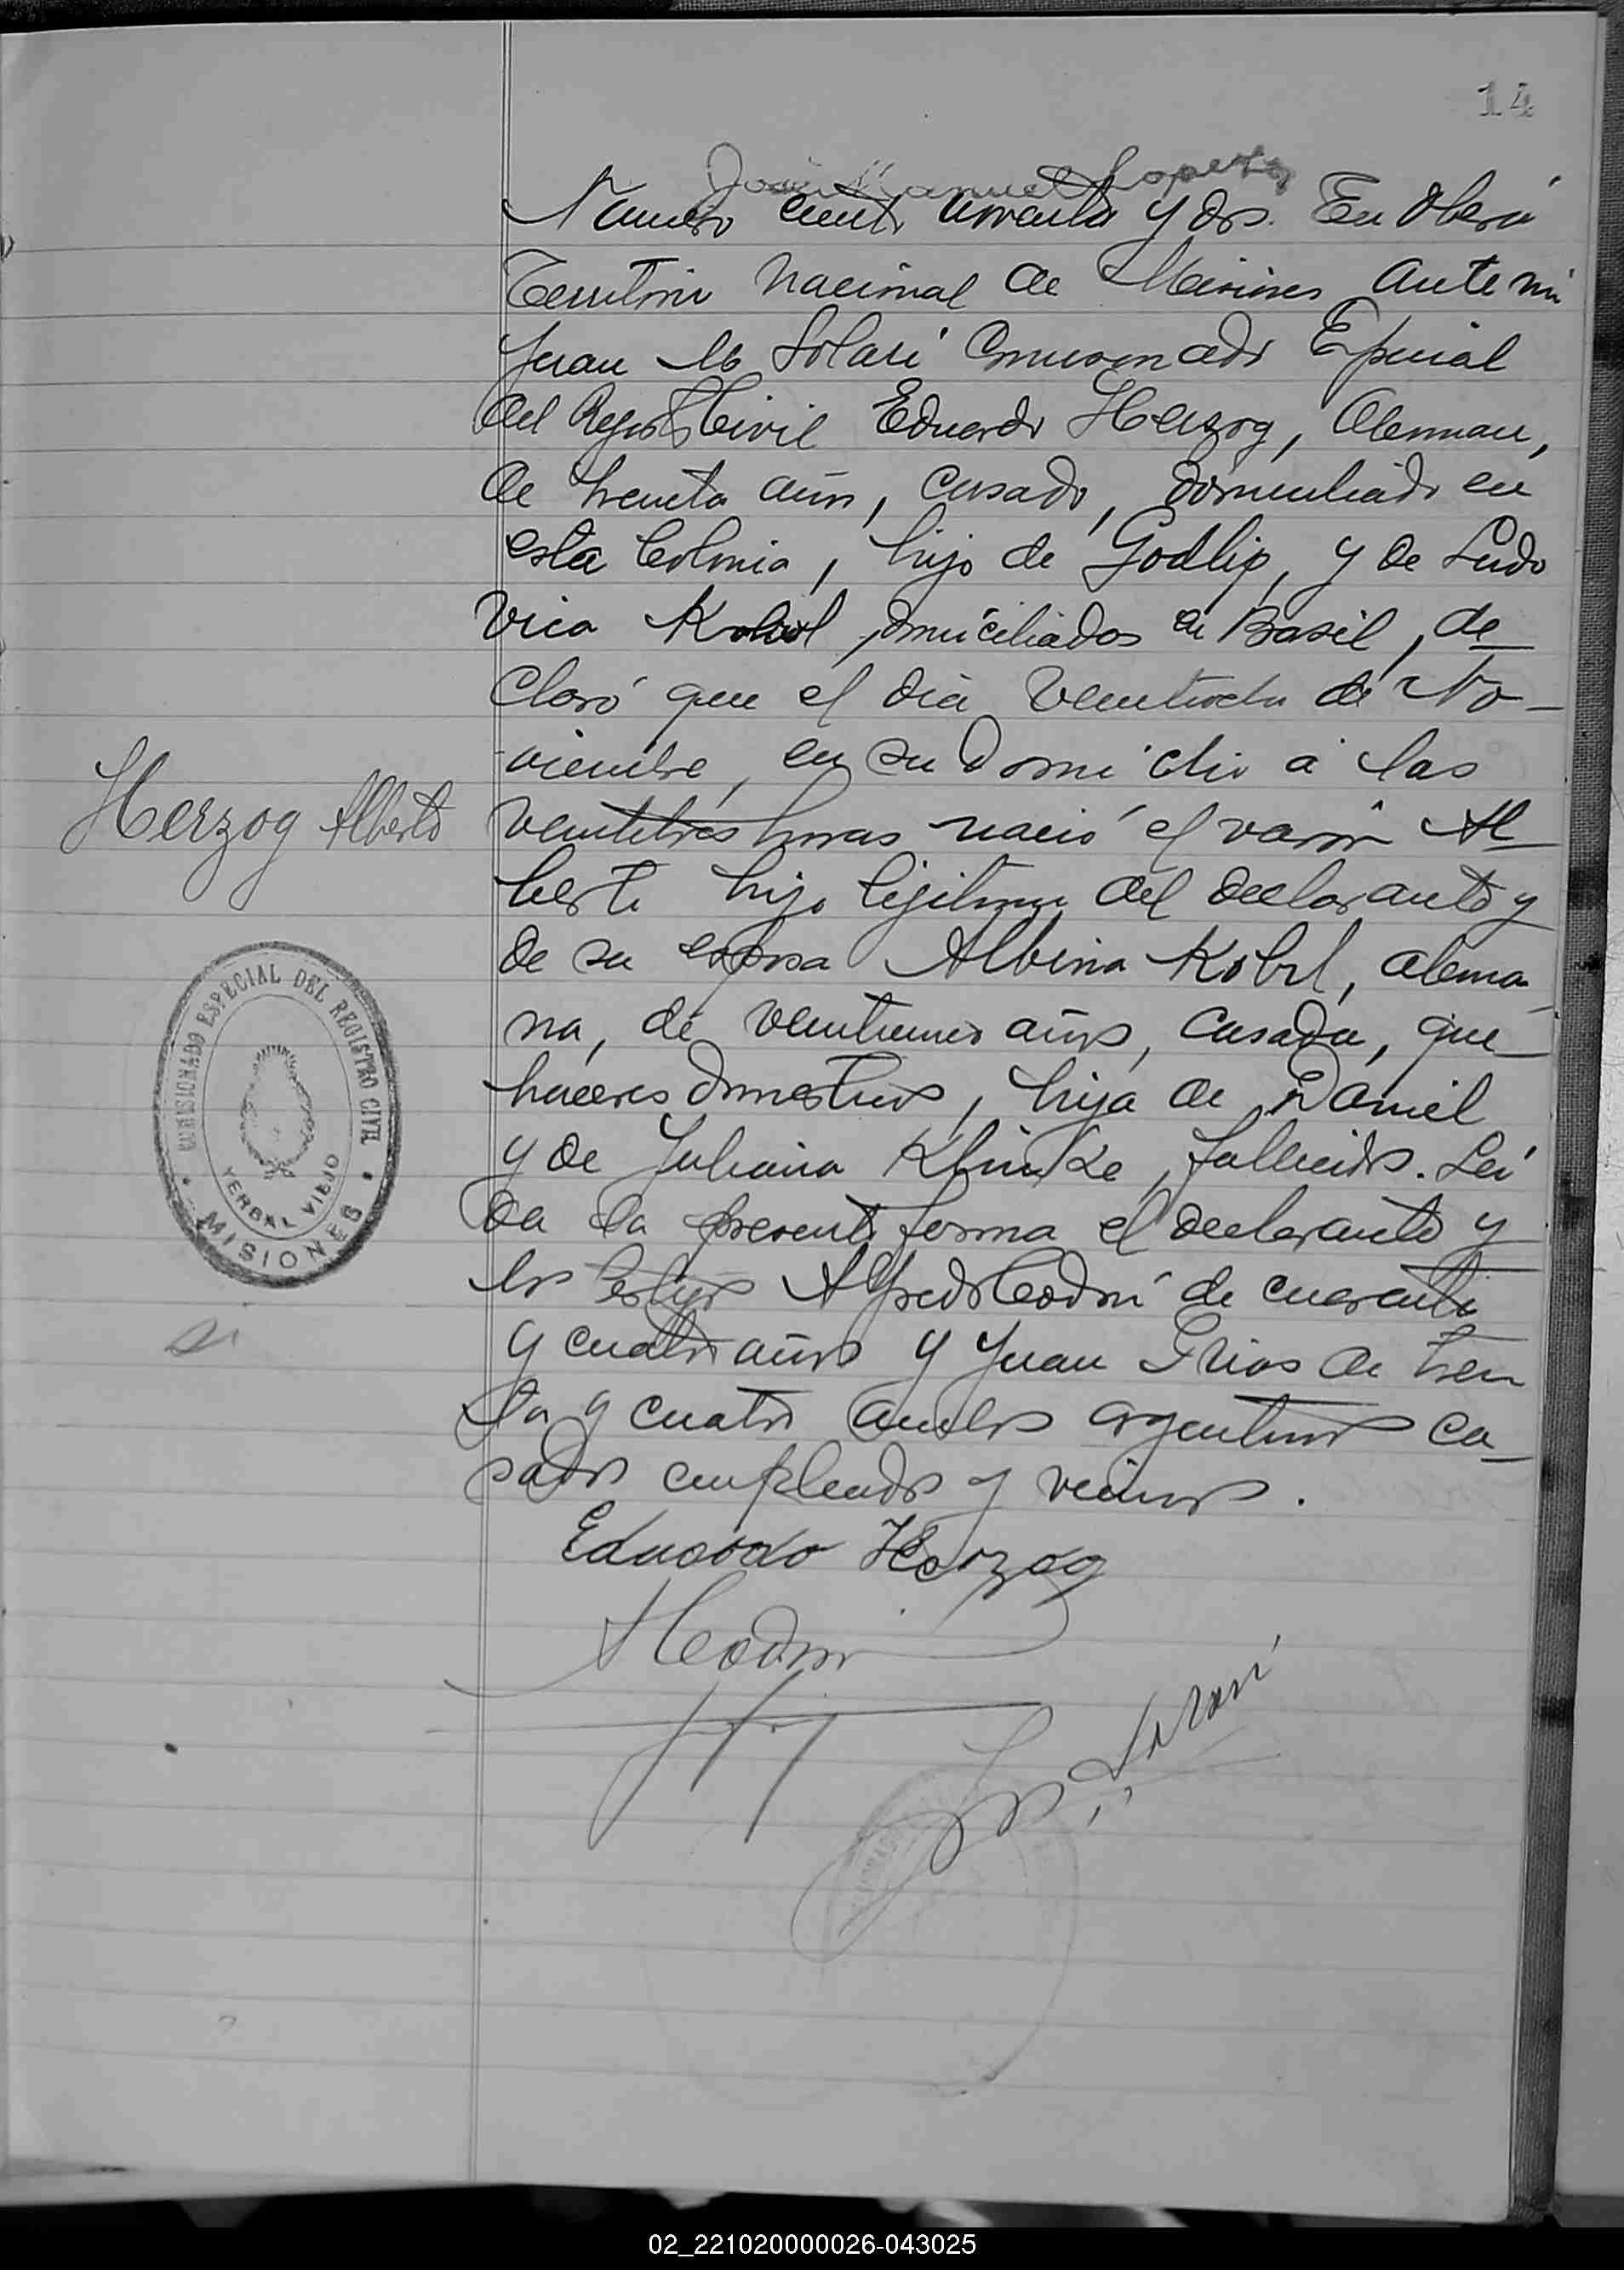 14
José Manuel Lopez
Numero ciento noventa y dos. En Oberá
Territorio Nacional de Misiones ante mi
Juan M Solari Comisionado Especial
del Registro Civil Eduardo Herzog, Aleman,
de treinta años, casado, domiciliado en
esta Colonia, hijo de Godlip, y de Ludo
vica Kobol, domiciliados en Brasil, de
claró que el dia veintiocho de No-
viembre, en su domicilio a las
veintitres horas nació el varon Al
Herzog Alberto
berto hijo legitimo del declarante y
de su esposa Albina Kobrl, alema
na, de veintiunos años, casada, que
haceres domesticos, hija de Daniel
y de Juliana Klinke, fallecidos. Lei
da la presente forma el declarante y
los testigos Alfredo Codoni de cuarenta
y cuatro años y Juan Frias de trein
ta y cuatro ambos argentinos ca-
sados empleados y vecinos.
COMISIONADO ESPECIAL DEL REGISTRO CIVIL
YERBAL VIEJO
MISIONES
Eduardo Herzog
ACodoni
Solari
02_221020000026-043025